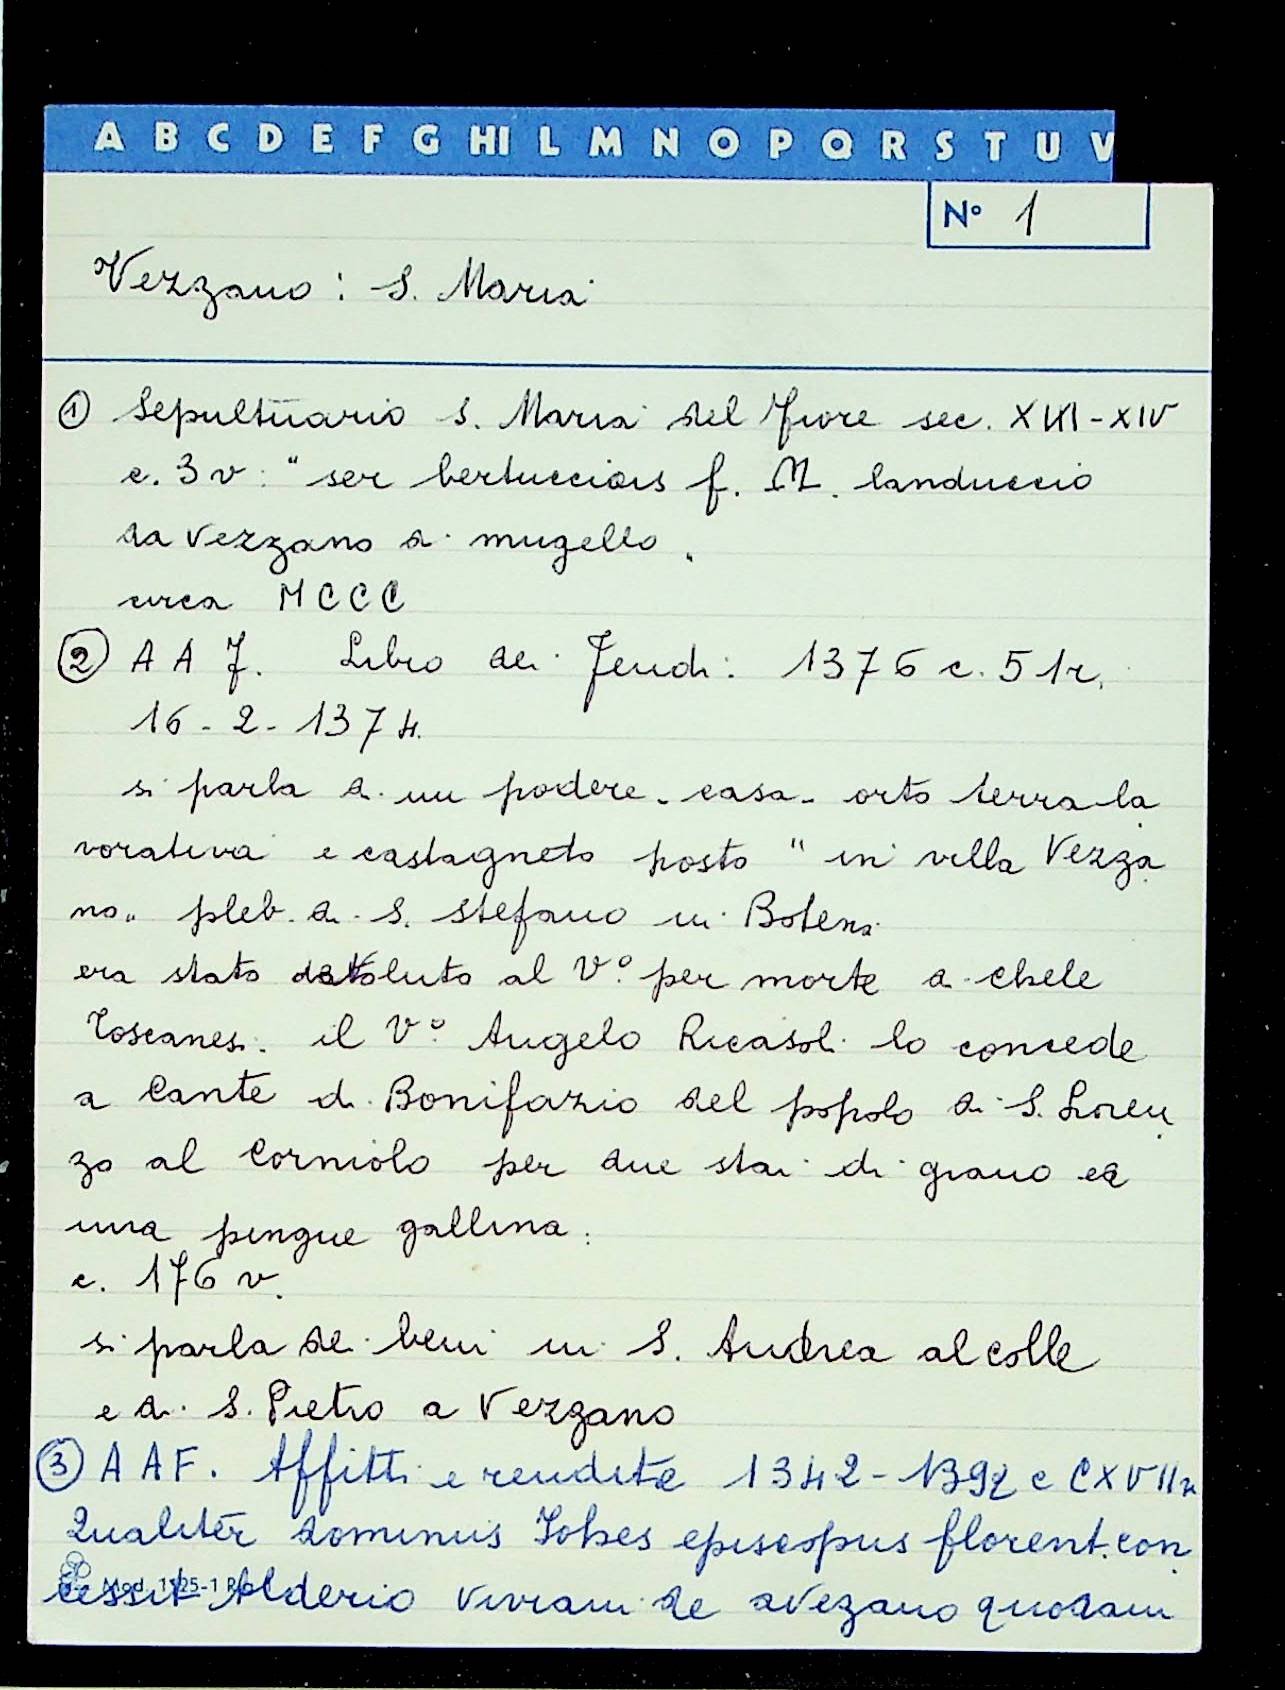 A B C D E F G HI L M N O P Q R S T U V
N° 1
Vezzano: S. Maria
① Sepultuario S. Maria del Fiore sec. XIII-XIV
c. 3v: "ser bertuccius f. M. landuccio
da Vezzano di mugello"
circa MCCC
② A A F. Libro dei Feudi: 1376 c. 51r.
16-2-1374.
si parla di un podere-casa-orto terra la
vorativa e castagneto posto "in villa Vezza
no" pleb. di S. Stefano in Botena
era stato devoluto al V° per morte di Chele
Toscanesi. il V° Angelo Ricasoli lo concede
a Cante di Bonifazio del popolo di S. Loren
zo al Corniolo per due stai di grano ed
una pingue gallina.
c. 176 v.
si parla dei beni in S. Andrea al colle
e di S. Pietro a Vezzano
③ A A F. Affitti e rendite 1342-1392 c CXVIIr
Qualiter dominus Johes episcopus florent. con
Mod. 1125-1 R
cessit Alderio Viviani de avezano quodam